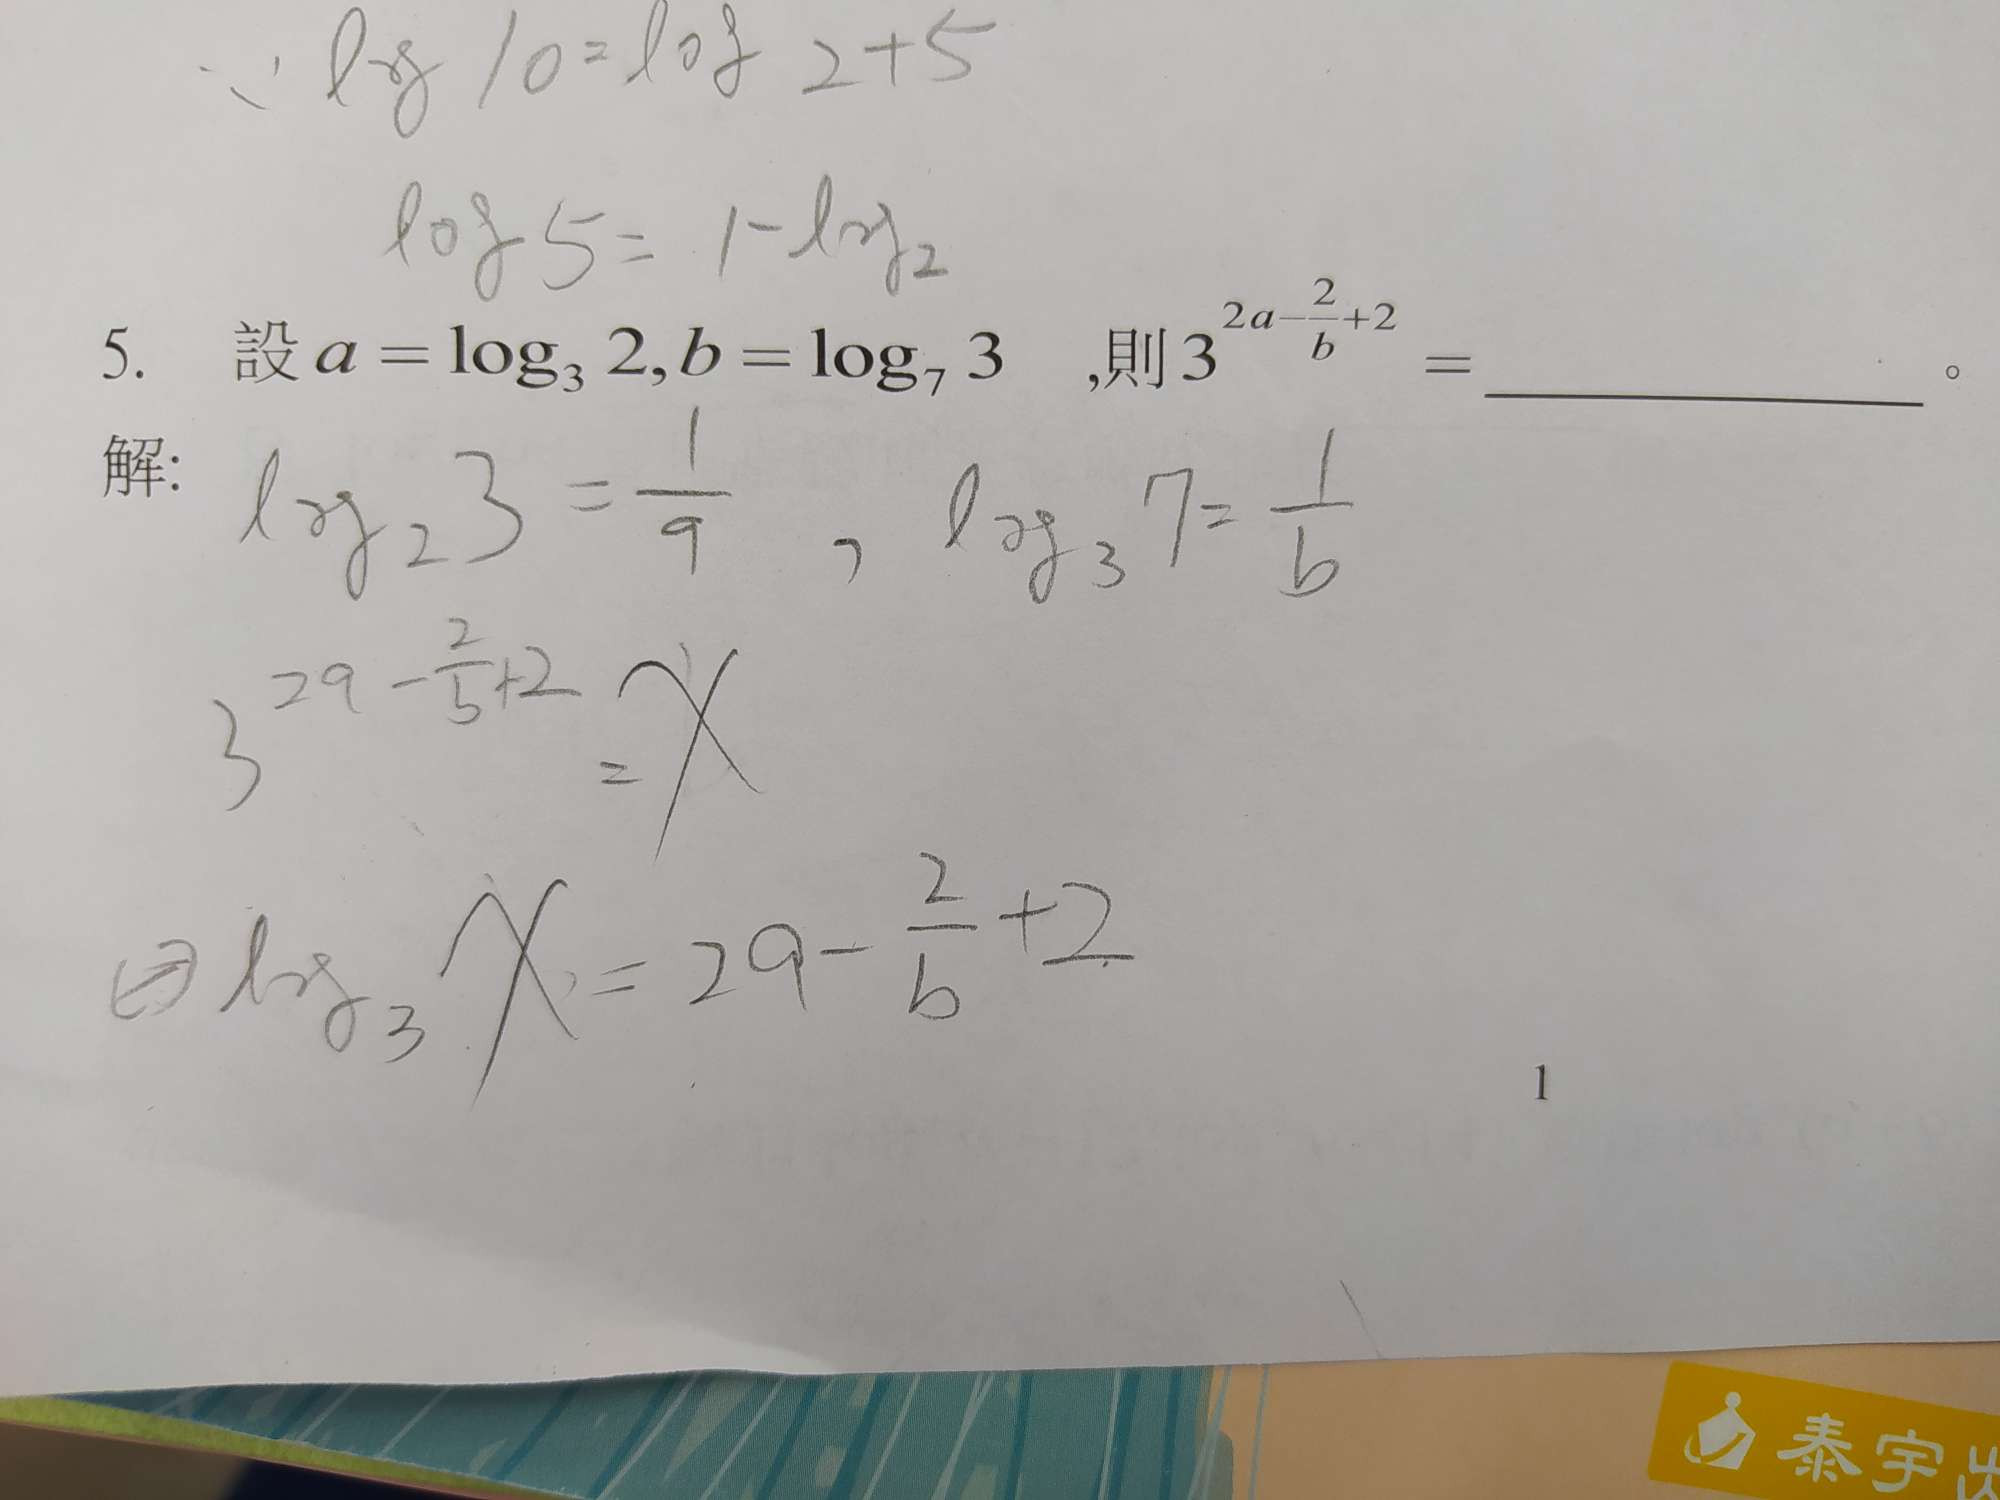 ∵ log 10 = log 2+5
log 5 = 1 - log 2
5. 設 a = log₃ 2, b = log₇ 3 ,則 3^(2a-2/b+2) = ________ 。
解: log₂ 3 = 1/a , log₃ 7 = 1/b
3^(2a-2/b+2) = x
⇒ log₃ x = 2a - 2/b + 2
1
泰宇出